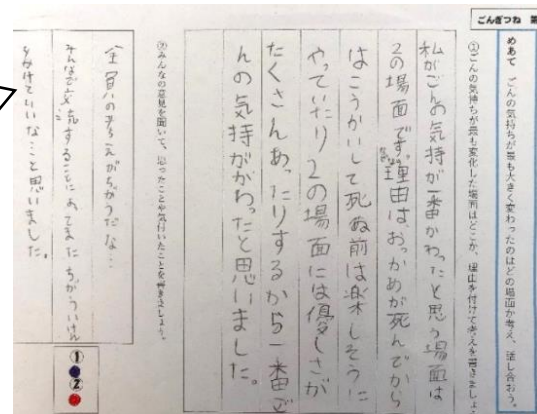 ごんぎつね 第
めあて ごんの気持ちが最も大きく変わったのはどの場面か考え、話し合おう。
①ごんの気持ちが最も変化した場面はどこか、理由を付けて考えを書きましょ
私がごんの気持が一番かわったと思う場面は
2の場面です。理由は、おっかあが死んでから
はこうかいして死ぬ前は楽しそうに
やっていたり2の場面には優しさが
たくさんあったりするから一番ご
んの気持がかわったと思いました。
②みんなの意見を聞いて、思ったことや気付いたことを書きましょう。
全員の考えがちがうだな…
みんなで交流することによってまたちがういけん
をみけていいな…と思いました。
①
②